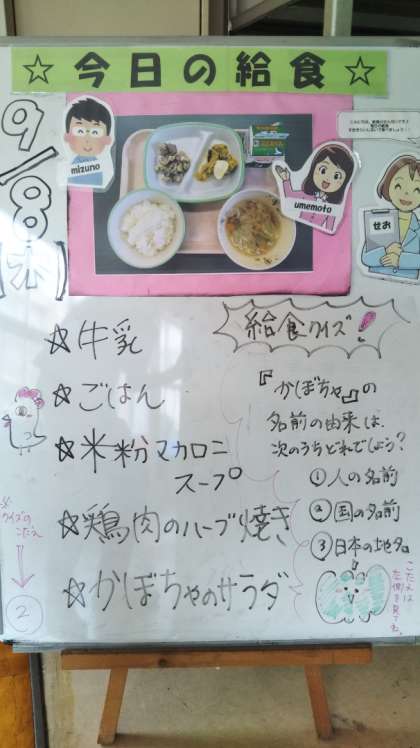 ☆今日の給食☆
9/8【木】
mizuno
umemoto
せお
☆牛乳
☆ごはん
☆米粉マカロニ
スープ
☆鶏肉のハーブ焼き
☆かぼちゃのサラダ
給食クイズ!
『かぼちゃ』の
名前の由来は、
次のうちどれでしょう?
①人の名前
②国の名前
③日本の地名
こたえは
左側を見てね。
クイズの
こたえ
②